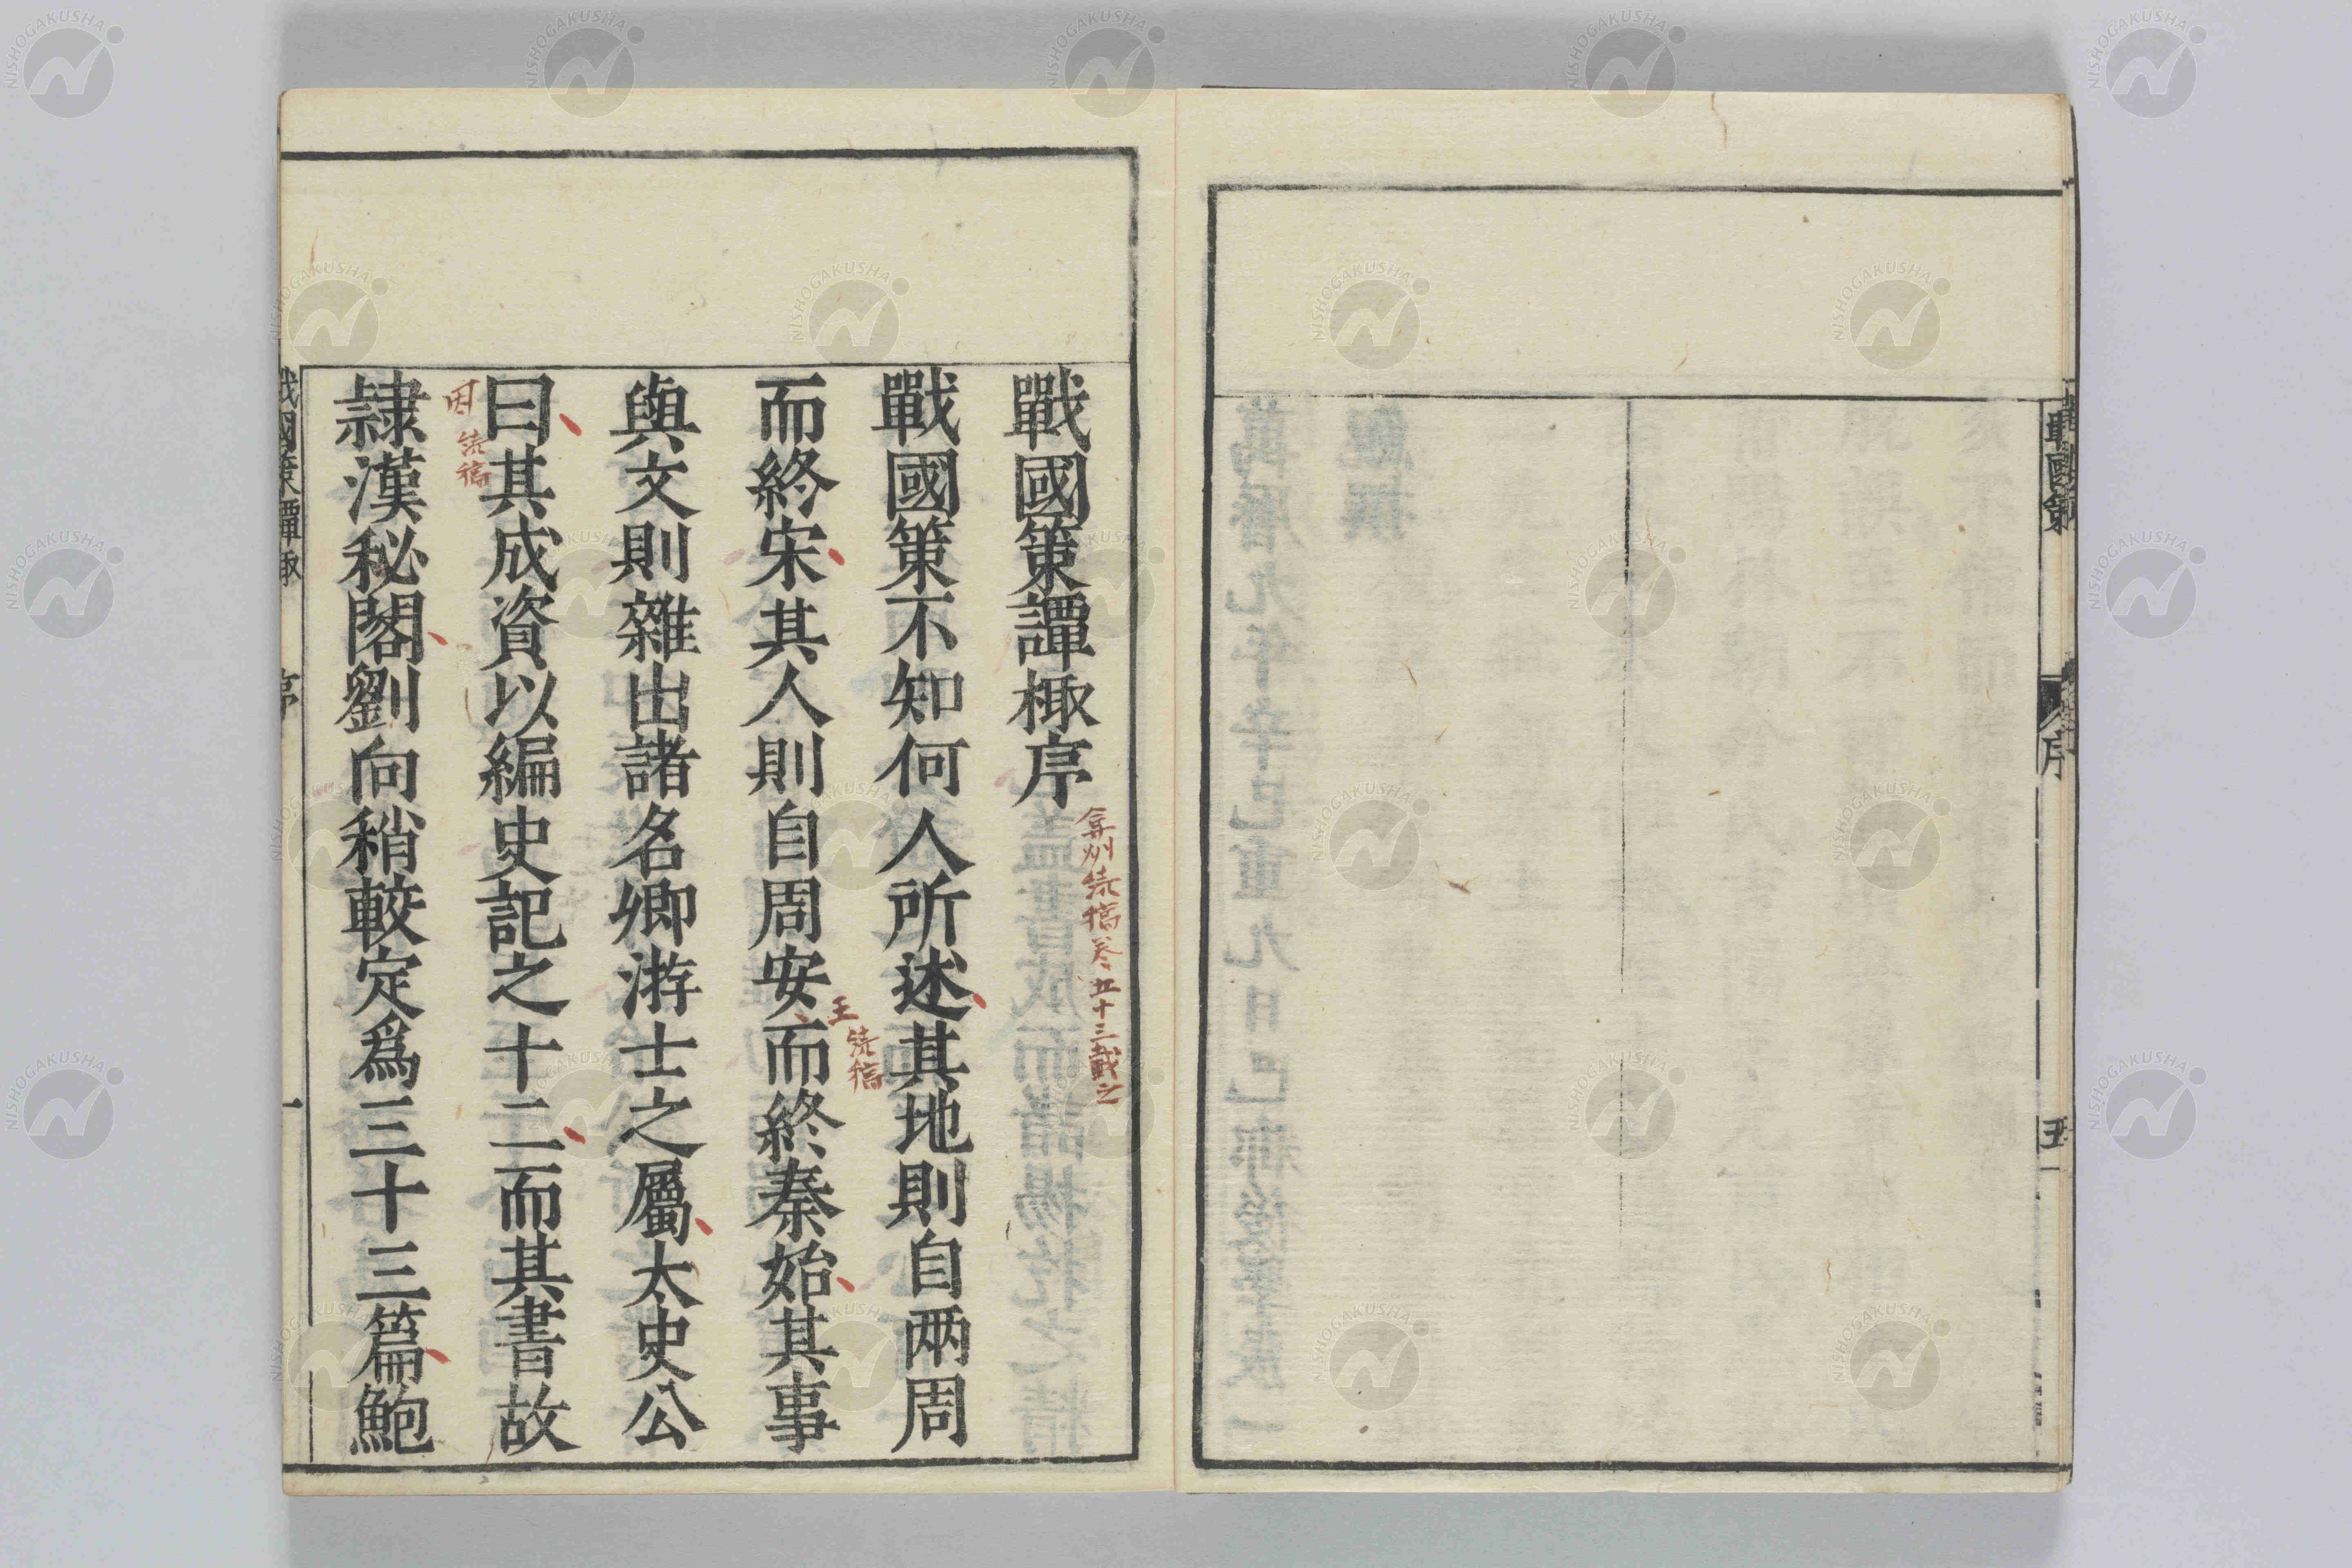 戰國策
序
五
戰國策譚棷序
弇州続稿巻五十三載之
戰國策不知何人所述其地則自兩周
而終宋其人則自周安而終秦始其事
王 続稿
與文則雜出諸名卿游士之屬太史公
曰其成資以編史記之十二而其書故
因 続稿
隷漢秘閣劉向稍較定爲三十三篇鮑
戰國策譚棷
序
一
NISHOGAKUSHA